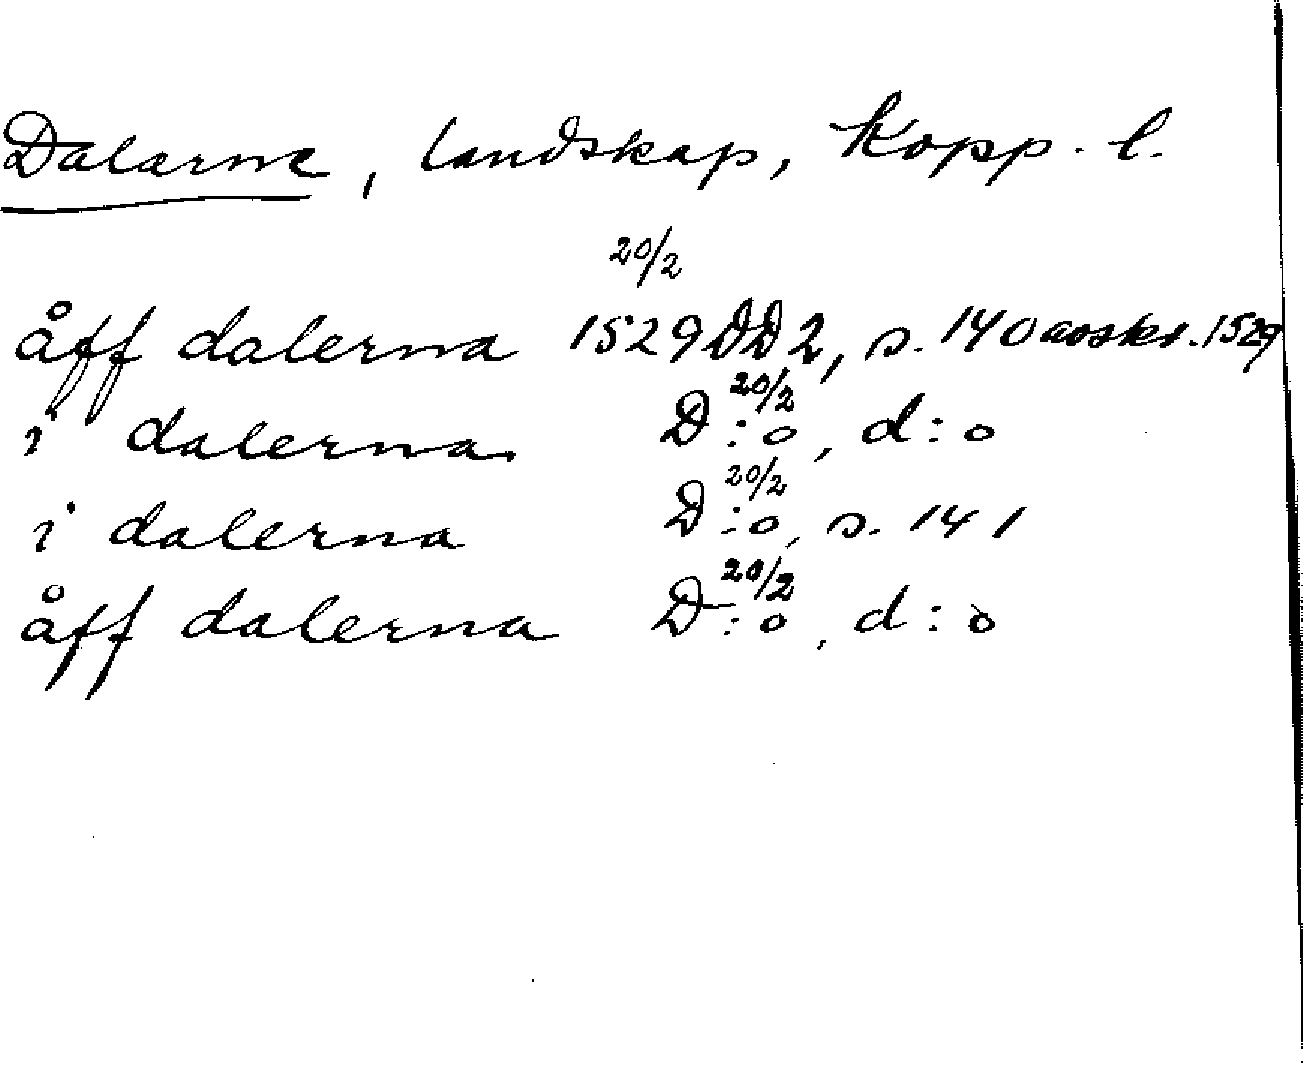 Dalarne, landskap, Kopp. l.
20/2
åff dalerna 1529 DD2, s. 140 avskr. 1529
i dalerna D:o 20/2, d:o
i dalerna D:o 20/2, s. 141
åff dalerna D:o 20/2, d:o